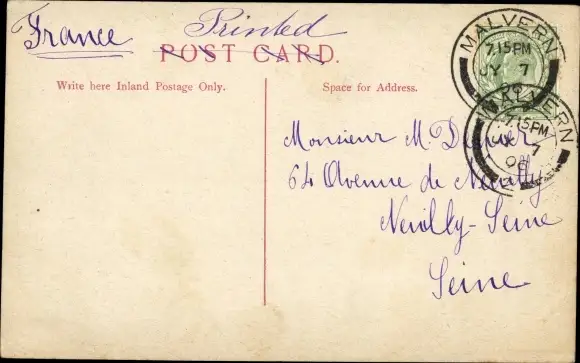 France
Printed
POST CARD.
Write here Inland Postage Only.
Space for Address.
MALVERN
7.15PM
JY 7
MALVERN
7.15PM
JY 7
06
Monsieur M.
64 Avenue de Neuilly
Neuilly-Seine
Seine